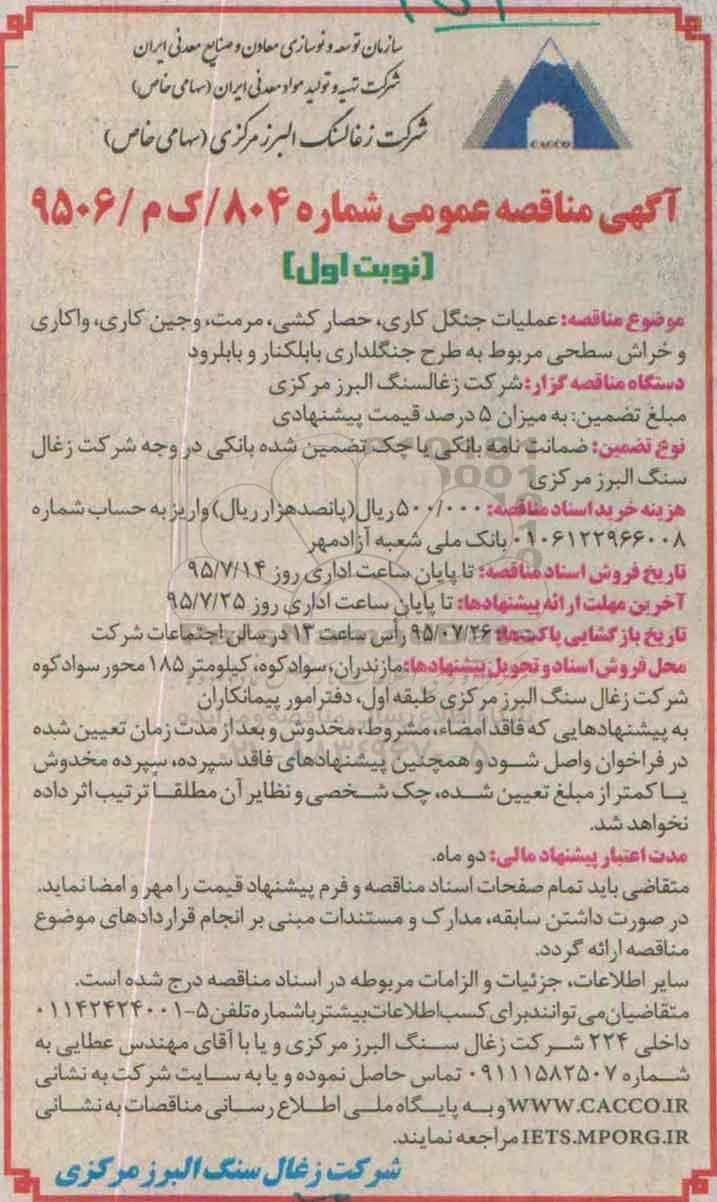 سازمان توسعه و نوسازی معادن و صنایع معدنی ایران
شرکت تهیه و تولید مواد معدنی ایران (سهامی خاص)
شرکت زغالسنگ البرز مرکزی (سهامی خاص)
CACCO
آگهی مناقصه عمومی شماره ۸۰۴/ک م/۹۵۰۶
(نوبت اول)
موضوع مناقصه: عملیات جنگل کاری، حصار کشی، مرمت، وجین کاری، واکاری
و خراش سطحی مربوط به طرح جنگلداری بابلکنار و بابلرود
دستگاه مناقصه گزار: شرکت زغالسنگ البرز مرکزی
مبلغ تضمین: به میزان ۵ درصد قیمت پیشنهادی
نوع تضمین: ضمانت نامه بانکی یا چک تضمین شده بانکی در وجه شرکت زغال
سنگ البرز مرکزی
هزینه خرید اسناد مناقصه: ۵۰۰/۰۰۰ ریال (پانصد هزار ریال) واریز به حساب شماره
۰۱۰۶۱۲۲۹۶۶۰۰۸ بانک ملی شعبه آزادمهر
تاریخ فروش اسناد مناقصه: تا پایان ساعت اداری روز ۹۵/۷/۱۴
آخرین مهلت ارائه پیشنهادها: تا پایان ساعت اداری روز ۹۵/۷/۲۵
تاریخ بازگشایی پاکت‌ها: ۹۵/۰۷/۲۶ رأس ساعت ۱۳ در سالن اجتماعات شرکت
محل فروش اسناد و تحویل پیشنهادها: مازندران، سوادکوه، کیلومتر ۱۸۵ محور سوادکوه
شرکت زغال سنگ البرز مرکزی طبقه اول، دفتر امور پیمانکاران
به پیشنهادهایی که فاقد امضاء، مشروط، مخدوش و بعد از مدت زمان تعیین شده
در فراخوان واصل شود و همچنین پیشنهادهای فاقد سپرده، سپرده مخدوش
یا کمتر از مبلغ تعیین شده، چک شخصی و نظایر آن مطلقاً ترتیب اثر داده
نخواهد شد.
مدت اعتبار پیشنهاد مالی: دو ماه.
متقاضی باید تمام صفحات اسناد مناقصه و فرم پیشنهاد قیمت را مهر و امضا نماید.
در صورت داشتن سابقه، مدارک و مستندات مبنی بر انجام قراردادهای موضوع
مناقصه ارائه گردد.
سایر اطلاعات، جزئیات و الزامات مربوطه در اسناد مناقصه درج شده است.
متقاضیان می توانند برای کسب اطلاعات بیشتر با شماره تلفن ۵-۰۱۱۴۲۴۲۴۰۰۱
داخلی ۲۲۴ شرکت زغال سنگ البرز مرکزی و یا با آقای مهندس عطایی به
شماره ۰۹۱۱۱۵۸۲۵۰۷ تماس حاصل نموده و یا به سایت شرکت به نشانی
WWW.CACCO.IR و به پایگاه ملی اطلاع رسانی مناقصات به نشانی
IETS.MPORG.IR مراجعه نمایند.
شرکت زغال سنگ البرز مرکزی